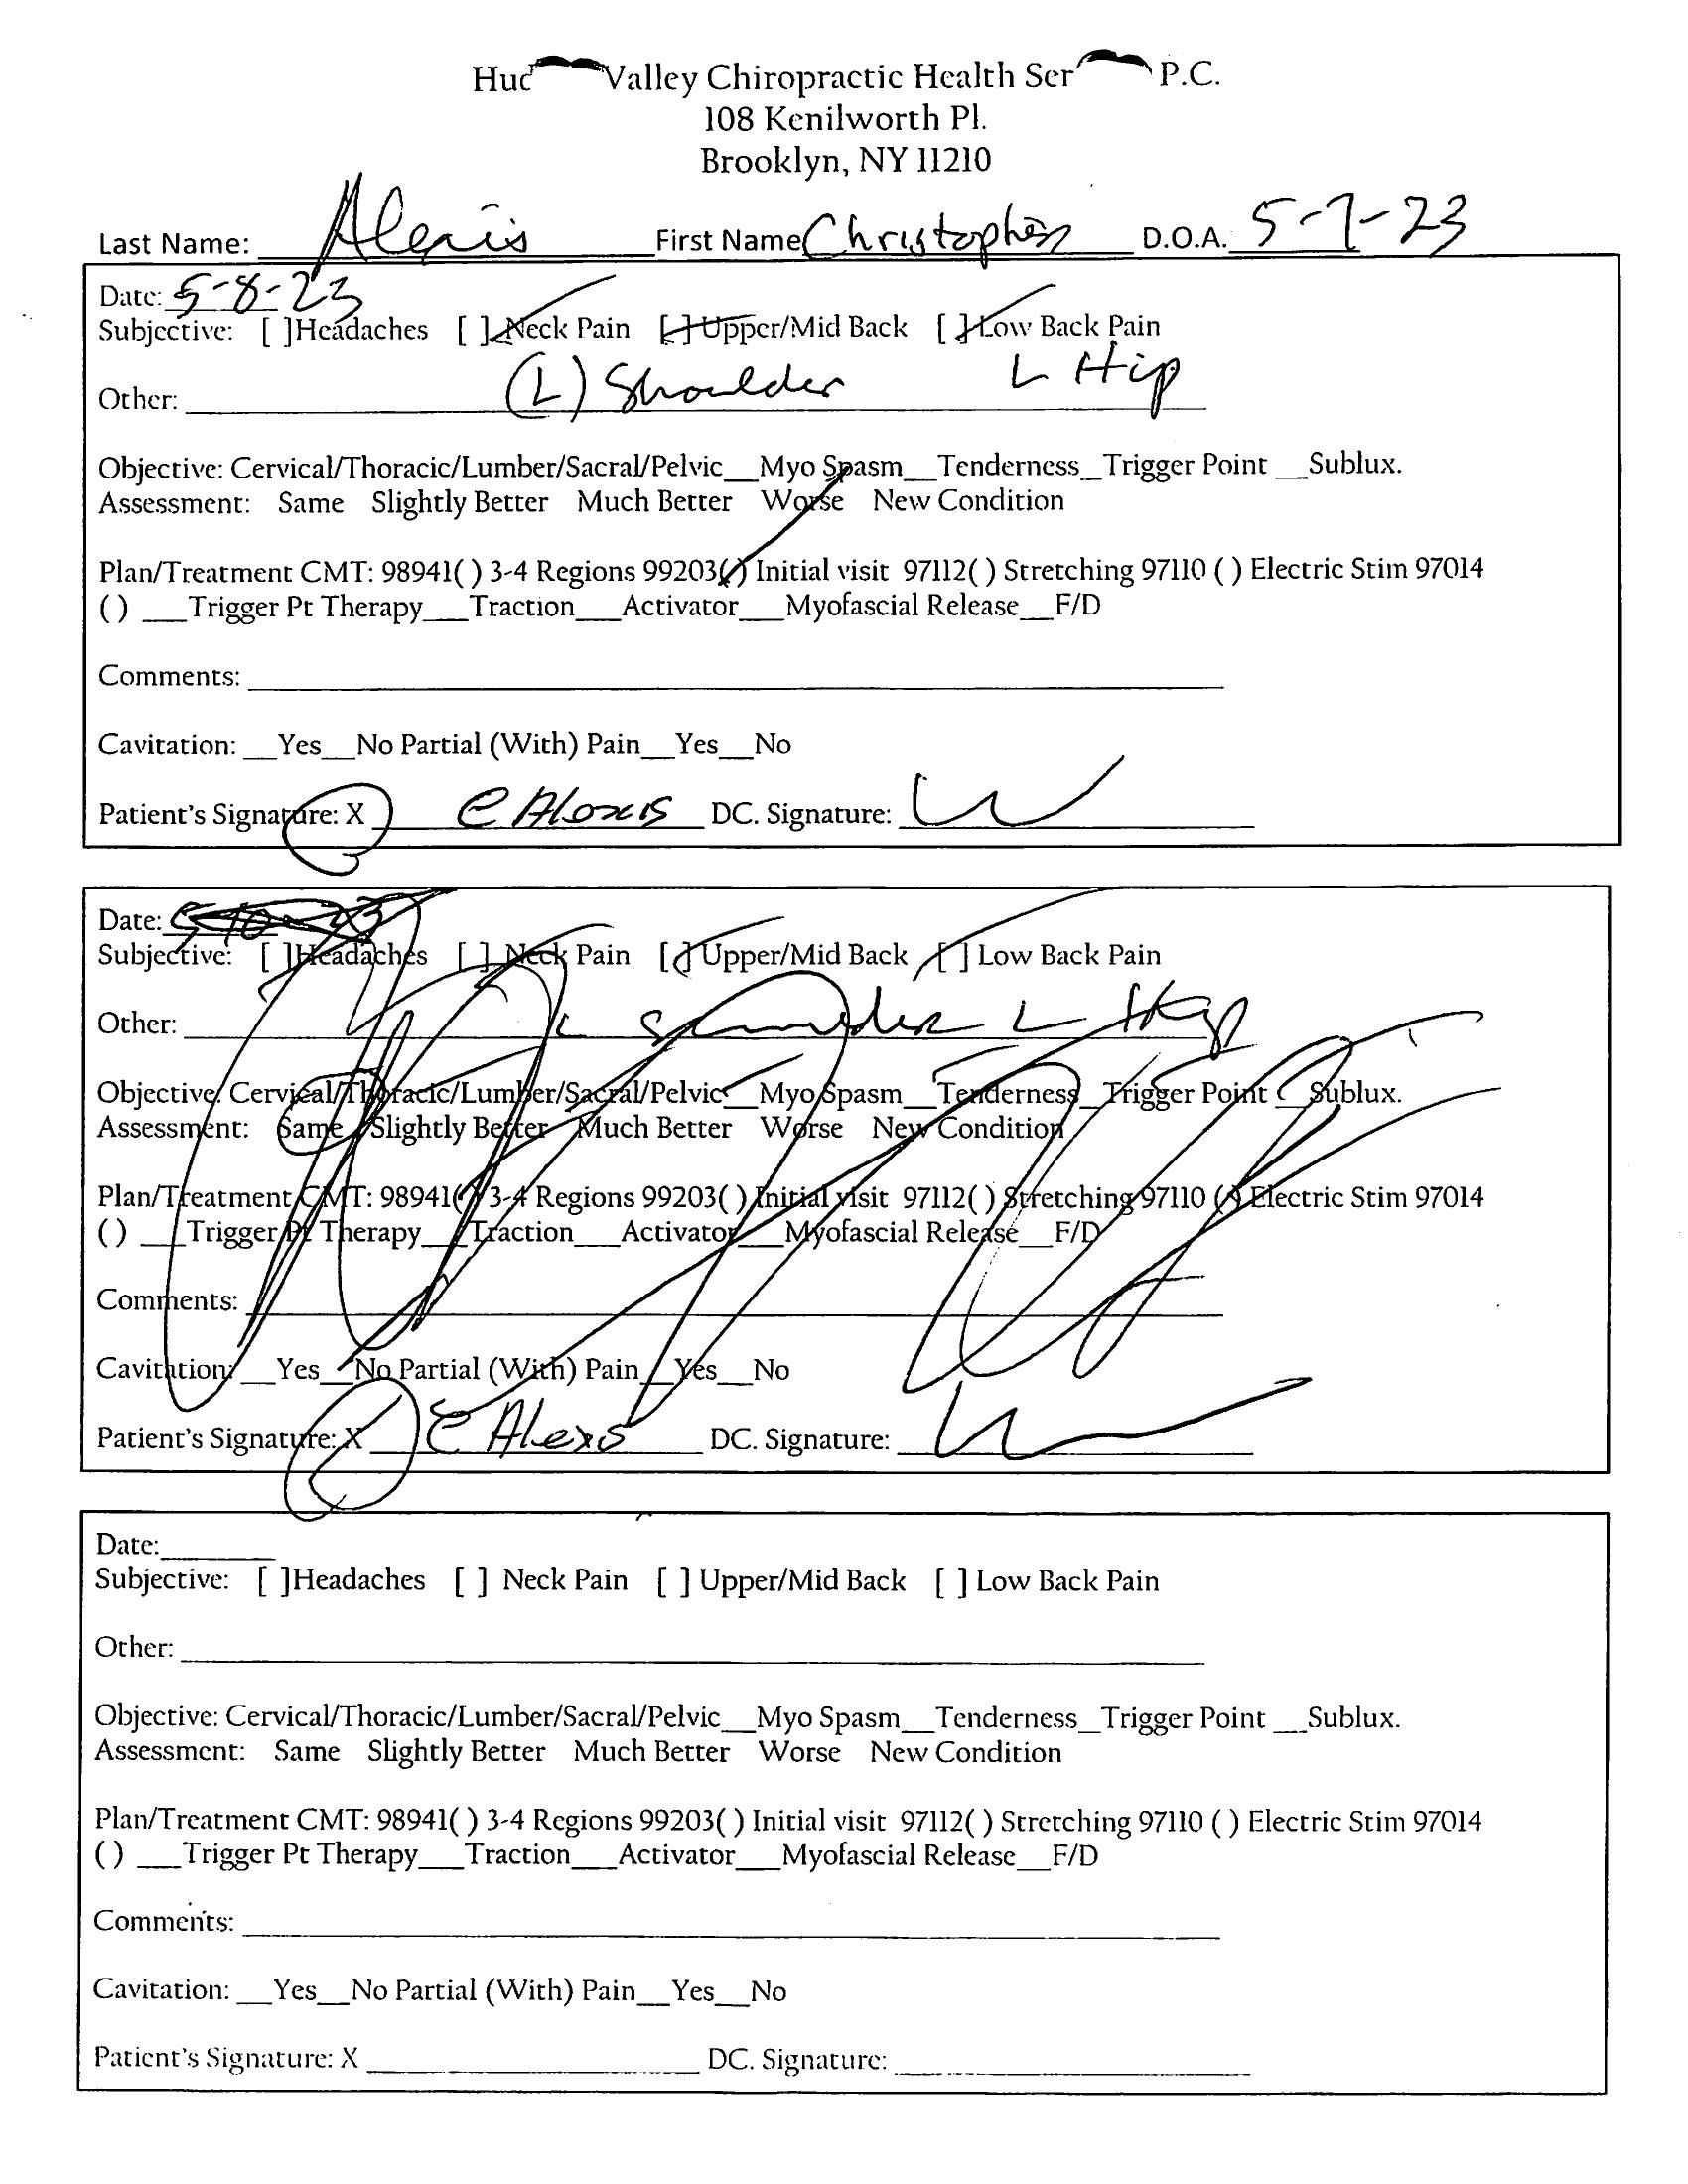 Hud Valley Chiropractic Health Ser P.C.
108 Kenilworth Pl.
Brooklyn, NY 11210
Last Name: Alexis First Name Christopher D.O.A. 5-7-23
Date: 5-8-23
Subjective: [ ]Headaches [ ] Neck Pain [ ] Upper/Mid Back [ ] Low Back Pain
Other: (L) Shoulder L Hip
Objective: Cervical/Thoracic/Lumber/Sacral/Pelvic__Myo Spasm__Tenderness_Trigger Point __Sublux.
Assessment: Same Slightly Better Much Better Worse New Condition
Plan/Treatment CMT: 98941( ) 3-4 Regions 99203(✓) Initial visit 97112( ) Stretching 97110 ( ) Electric Stim 97014
( ) ___Trigger Pt Therapy___Traction___Activator___Myofascial Release__F/D
Comments:
Cavitation: __Yes__No Partial (With) Pain__Yes__No
Patient's Signature: X C Alexis DC. Signature:
Date: 5-10-23
Subjective: [ ]Headaches [ ] Neck Pain [ ] Upper/Mid Back [ ] Low Back Pain
Other: L Shoulder L Hip
Objective: Cervical/Thoracic/Lumber/Sacral/Pelvic__Myo Spasm__Tenderness_Trigger Point __Sublux.
Assessment: Same Slightly Better Much Better Worse New Condition
Plan/Treatment CMT: 98941(✓) 3-4 Regions 99203( ) Initial visit 97112( ) Stretching 97110 (✓) Electric Stim 97014
( ) ___Trigger Pt Therapy___Traction___Activator___Myofascial Release__F/D
Comments:
Cavitation: __Yes__No Partial (With) Pain__Yes__No
Patient's Signature: X C Alexis DC. Signature:
Date:
Subjective: [ ]Headaches [ ] Neck Pain [ ] Upper/Mid Back [ ] Low Back Pain
Other:
Objective: Cervical/Thoracic/Lumber/Sacral/Pelvic__Myo Spasm__Tenderness_Trigger Point __Sublux.
Assessment: Same Slightly Better Much Better Worse New Condition
Plan/Treatment CMT: 98941( ) 3-4 Regions 99203( ) Initial visit 97112( ) Stretching 97110 ( ) Electric Stim 97014
( ) ___Trigger Pt Therapy___Traction___Activator___Myofascial Release__F/D
Comments:
Cavitation: __Yes__No Partial (With) Pain__Yes__No
Patient's Signature: X DC. Signature: